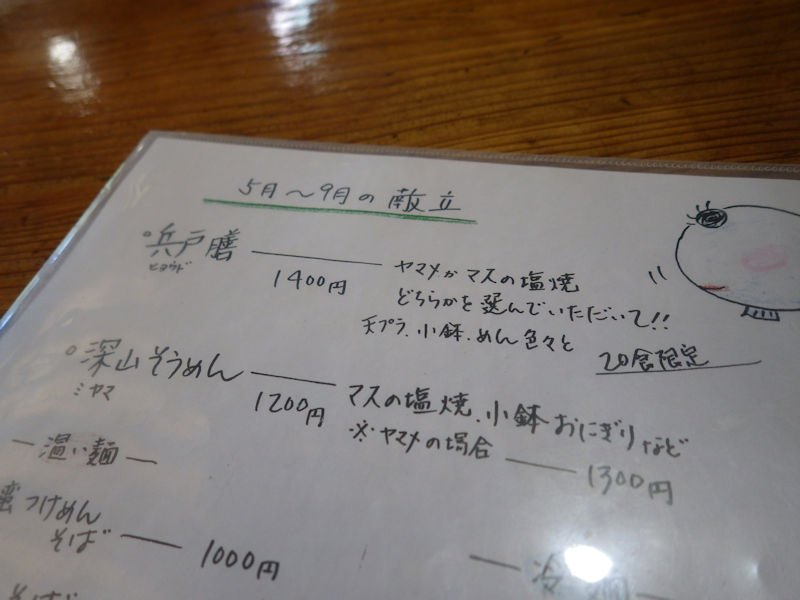 5月〜9月の献立
○兵戸膳 ——— 1400円
ヒョウド
ヤマメかマスの塩焼
どちらかを選んでいただいて!!
天プラ、小鉢、めん色々と
20食限定
○深山そうめん —— 1200円
ミヤマ
マスの塩焼、小鉢おにぎりなど
※ヤマメの場合 —— 1300円
—温い麺—
つけめん
そば —— 1000円
—冷 麺—
そば